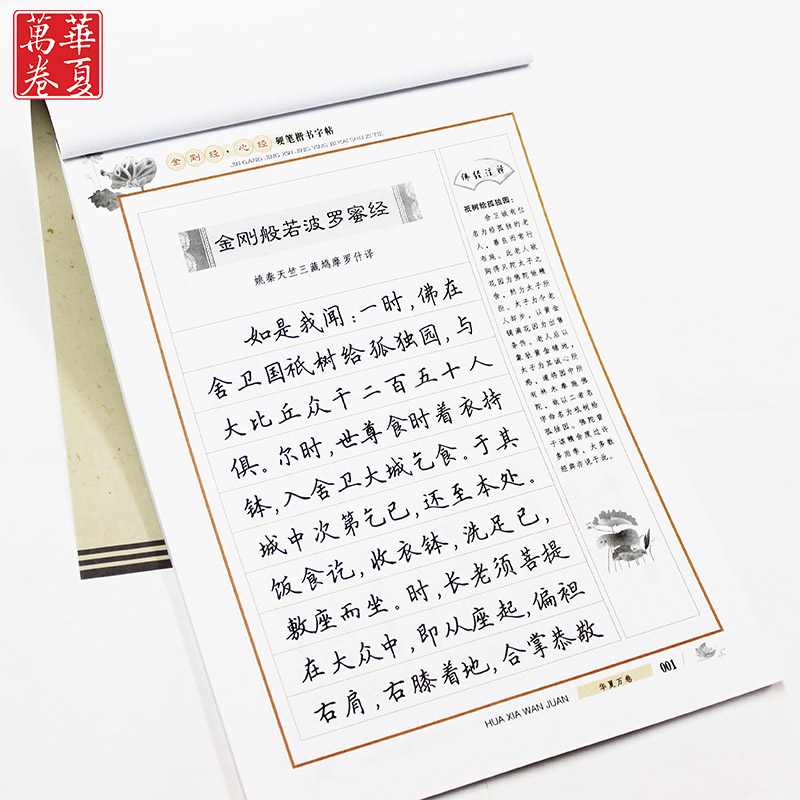 華夏
萬卷
金刚经·心经 硬笔楷书字帖
金刚般若波罗蜜经
姚秦天竺三藏鸠摩罗什译
如是我闻：一时，佛在
舍卫国祇树给孤独园，与
大比丘众千二百五十人
俱。尔时，世尊食时着衣持
钵，入舍卫大城乞食。于其
城中次第乞已，还至本处。
饭食讫，收衣钵，洗足已，
敷座而坐。时，长老须菩提
在大众中，即从座起，偏袒
右肩，右膝着地，合掌恭敬
佛经注释
祇树给孤独园：
舍卫城有位
名为给孤独的老
人，善良而常行
布施。此老人欲
购得只陀太子之
花园为佛陀做精
舍，然为太子所
拒。太子为令老
人却步，以黄金
铺满花园为出售
条件。老人后以
象驮黄金铺地，
太子为其诚心所
感，遂将园中所
有林木奉施佛
陀，故以二者名
字命名为祇树给
孤独园。佛陀曾
于该精舍度过许
多雨季，大多数
经典亦说于此。
华夏万卷
001
HUA XIA WAN JUAN